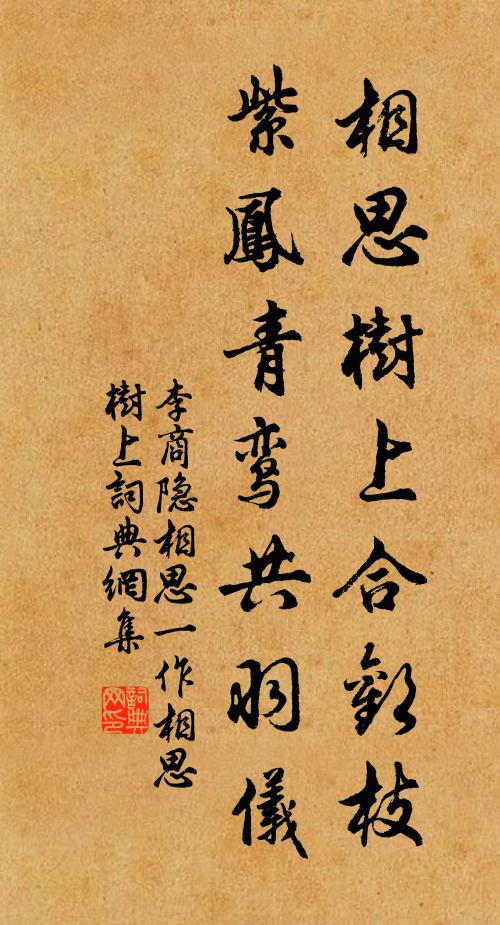 相思樹上合歡枝
紫鳳青鸞共羽儀
李商隐相思一作相思
樹上詞典網集
詞典网印